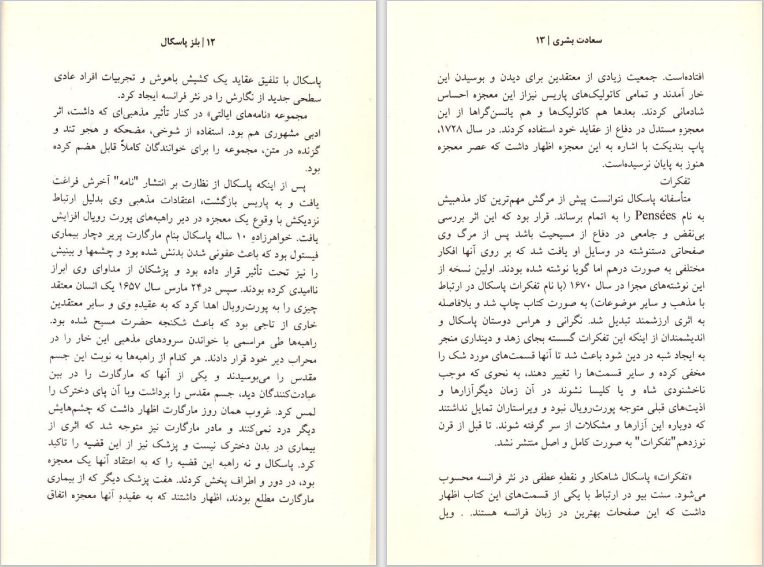 ۱۲ | بلز پاسکال
پاسکال با تلفیق عقاید یک کشیش باهوش و تجربیات افراد عادی
سطحی جدید از نگارش را در نثر فرانسه ایجاد کرد.
مجموعه «نامه‌های ایالتی» در کنار تأثیر مذهبی‌ای که داشت، اثر
ادبی مشهوری هم بود. استفاده از شوخی، مضحکه و هجو تند و
گزنده در متن، مجموعه را برای خوانندگان کاملاً قابل هضم کرده
بود.
پس از اینکه پاسکال از نظارت بر انتشار "نامه" آخرش فراغت
یافت و به پاریس بازگشت، اعتقادات مذهبی وی بدلیل ارتباط
نزدیکش با وقوع یک معجزه در دیر راهبه‌های پورت رویال افزایش
یافت. خواهرزادهٔ ۱۰ ساله پاسکال بنام مارگارت پریر دچار بیماری
فیستول بود که باعث عفونی شدن بدنش شده بود و چشمها و بینیش
را نیز تحت تأثیر قرار داده بود و پزشکان از مداوای وی ابراز
ناامیدی کرده بودند. سپس در۲۴ مارس سال ۱۶۵۷ یک انسان معتقد
چیزی را به پورت‌رویال اهدا کرد که به عقیدهٔ وی و سایر معتقدین
خاری از تاجی بود که باعث شکنجه حضرت مسیح شده بود.
راهبه‌ها طی مراسمی با خواندن سرودهای مذهبی این خار را در
محراب دیر خود قرار دادند. هر کدام از راهبه‌ها به نوبت این جسم
مقدس را می‌بوسیدند و یکی از آنها که مارگارت را در بین
عبادت‌کنندگان دید، جسم مقدس را برداشت وبا آن پای دخترک را
لمس کرد. غروب همان روز مارگارت اظهار داشت که چشم‌هایش
دیگر درد نمی‌کنند و مادر مارگارت نیز متوجه شد که اثری از
بیماری در بدن دخترک نیست و پزشک نیز از این قضیه را تاکید
کرد. پاسکال و نه راهبه این قضیه را که به اعتقاد آنها یک معجزه
بود، در دور و اطراف پخش کردند. هفت پزشک دیگر که از بیماری
مارگارت مطلع بودند، اظهار داشتند که به عقیدهٔ آنها معجزه اتفاق
سعادت بشری | ۱۳
افتاده‌است. جمعیت زیادی از معتقدین برای دیدن و بوسیدن این
خار آمدند و تمامی کاتولیک‌های پاریس نیزاز این معجزه احساس
شادمانی کردند. بعدها هم کاتولیک‌ها و هم یانسن‌گراها از این
معجزهٔ مستدل در دفاع از عقاید خود استفاده کردند. در سال ۱۷۲۸،
پاپ بندیکت با اشاره به این معجزه اظهار داشت که عصر معجزه
هنوز به پایان نرسیده‌است.
تفکرات
متأسفانه پاسکال نتوانست پیش از مرگش مهم‌ترین کار مذهبیش
به نام Pensées را به اتمام برساند. قرار بود که این اثر بررسی
بی‌نقض و جامعی در دفاع از مسیحیت باشد پس از مرگ وی
صفحاتی دستنوشته در وسایل او یافت شد که بر روی آنها افکار
مختلفی به صورت درهم اما گویا نوشته شده بودند. اولین نسخه از
این نوشته‌های مجزا در سال ۱۶۷۰ (با نام تفکرات پاسکال در ارتباط
با مذهب و سایر موضوعات) به صورت کتاب چاپ شد و بلافاصله
به اثری ارزشمند تبدیل شد. نگرانی و هراس دوستان پاسکال و
اندیشمندان از اینکه این تفکرات گسسته بجای زهد و دینداری منجر
به ایجاد شبه در دین شود باعث شد تا آنها قسمت‌های مورد شک را
مخفی کرده و سایر قسمت‌ها را تغییر دهند، به نحوی که موجب
ناخشنودی شاه و یا کلیسا نشوند در آن زمان دیگرآزارها و
اذیت‌های قبلی متوجه پورت‌رویال نبود و ویراستاران تمایل نداشتند
که دوباره این آزارها و مشکلات از سر گرفته شوند. تا قبل از قرن
نوزدهم"تفکرات" به صورت کامل و اصل منتشر نشد.
«تفکرات» پاسکال شاهکار و نقطهٔ عطفی در نثر فرانسه محسوب
می‌شود. سنت بیو در ارتباط با یکی از قسمت‌های این کتاب اظهار
داشت که این صفحات بهترین در زبان فرانسه هستند. . ویل